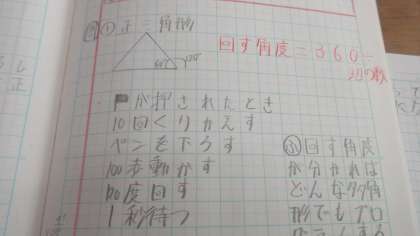 ① 正三角形
60°
120°
回す角度=360÷
辺の数
が押されたとき
10回くりかえす
ペンを下ろす
100歩動かす
120度回す
1秒待つ
回す角度
が分かれば
どんな多角
形でもプロ